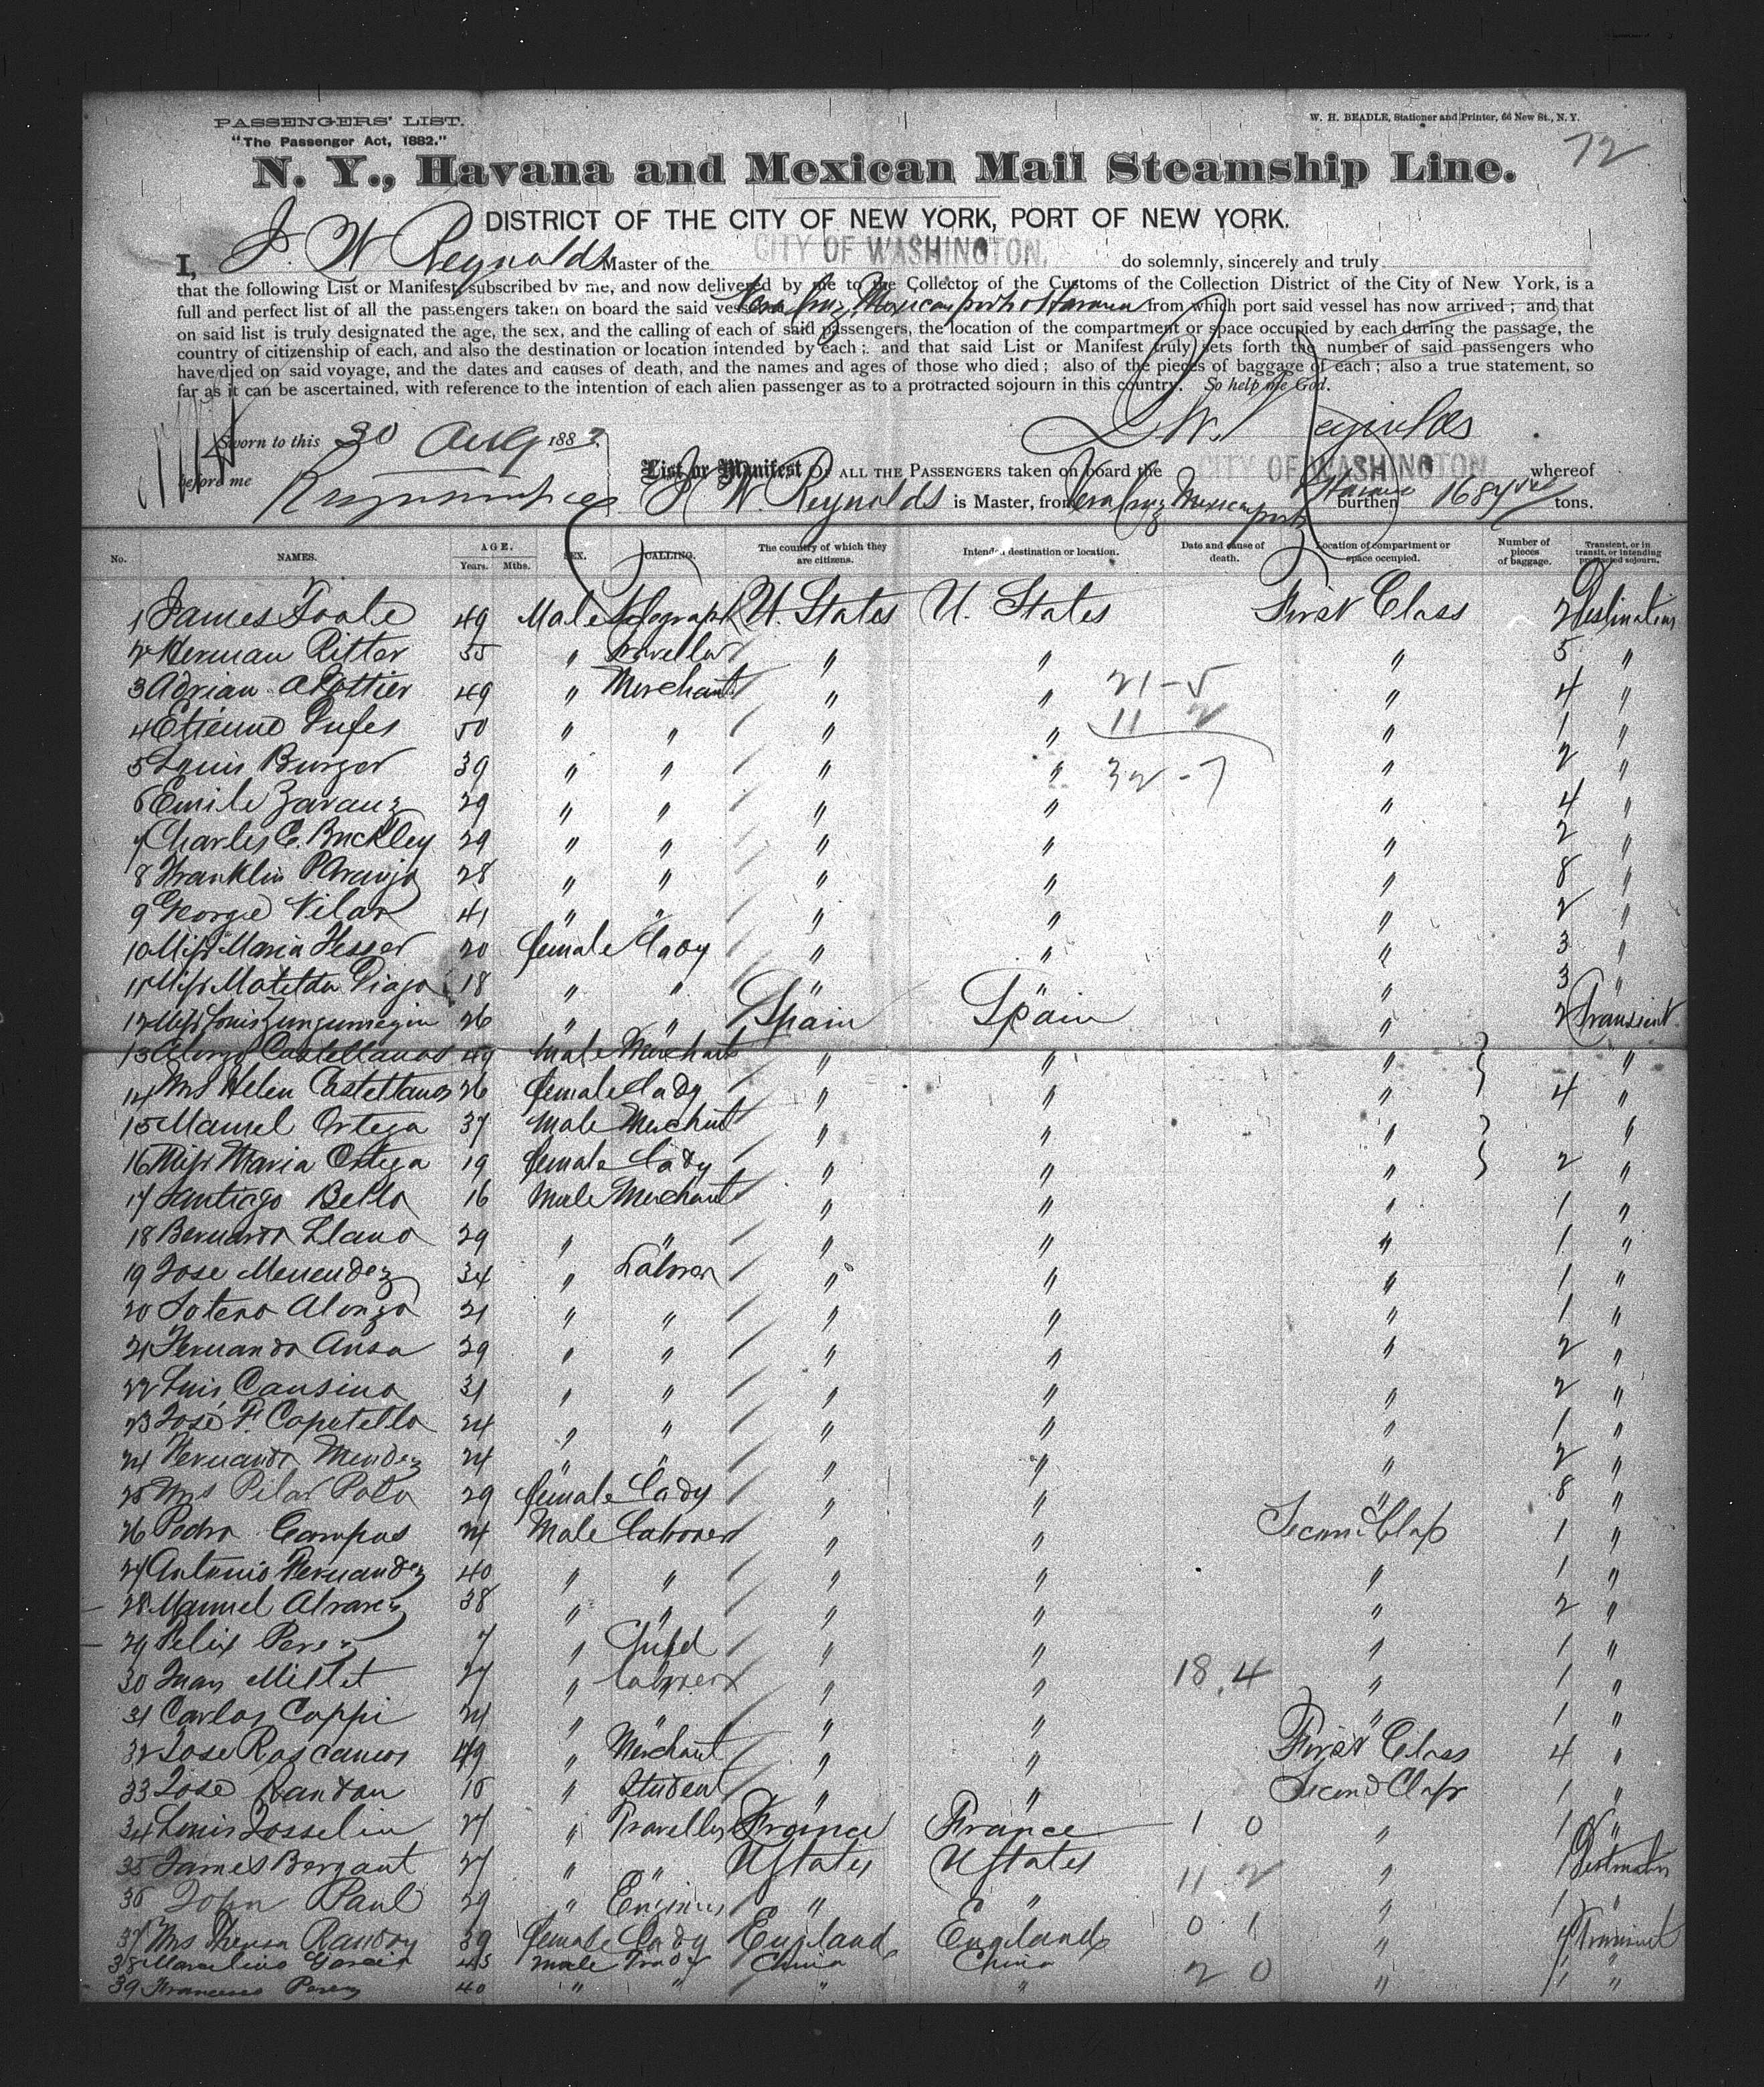 PASSENGERS' LIST.
"The Passenger Act, 1882."
W. H. BEADLE, Stationer and Printer, 66 New St., N. Y.
72
N. Y., Havana and Mexican Mail Steamship Line.
DISTRICT OF THE CITY OF NEW YORK, PORT OF NEW YORK.
I, J. W Reynolds Master of the CITY OF WASHINGTON. do solemnly, sincerely and truly
that the following List or Manifest, subscribed by me, and now delivered by me to the Collector of the Customs of the Collection District of the City of New York, is a
full and perfect list of all the passengers taken on board the said vessel Vera Cruz, Mexican ports & Havana from which port said vessel has now arrived; and that
on said list is truly designated the age, the sex, and the calling of each of said passengers, the location of the compartment or space occupied by each during the passage, the
country of citizenship of each, and also the destination or location intended by each; and that said List or Manifest truly sets forth the number of said passengers who
have died on said voyage, and the dates and causes of death, and the names and ages of those who died; also of the pieces of baggage of each; also a true statement, so
far as it can be ascertained, with reference to the intention of each alien passenger as to a protracted sojourn in this country. So help me God.
Sworn to this 30 Aug 1887
J. W. Reynolds
before me
List or Manifest OF ALL THE PASSENGERS taken on board the CITY OF WASHINGTON whereof
J W. Reynolds is Master, from Vera Cruz Mexican ports Havana burthen 1684 tons.
No. NAMES. AGE. Years. Mths. SEX. CALLING. The country of which they are citizens. Intended destination or location. Date and cause of death. Location of compartment or space occupied. Number of pieces of baggage. Transient, or in transit, or intending protracted sojourn.
1 James Toole 49 Male Telegraph U. States U. States First Class 2 Destination
2 Herman Ritter 55 " Traveller " " " 5 "
3 Adrian 49 " Merchant " " 21-5 " 4 "
4 Etienne 50 " " " " 11 2 " 1 "
5 Louis Burger 39 " " " " 32-7 " 2 "
6 Emile 29 " " " " " 4 "
7 Charles E. Buckley 29 " " " " " 2 "
8 Franklin 28 " " " " " 8 "
9 George Vilar 41 " " " " " 2 "
10 Miss Maria Hesser 20 female Lady " " " 3 "
11 Miss Matilda Diago 18 " " " " " 3 "
12 Miss Louis 26 " " Spain Spain " 2 Transient
13 Castellanos 49 male Merchant " " " "
14 Mrs Helen Castellanos 26 female Lady " " " 4 "
15 Manuel Ortega 37 male Merchant " " " "
16 Miss Maria Ortega 19 female Lady " " " 2 "
17 Santiago Bello 16 Male Merchant " " " 1 "
18 Bernardo Llano 29 " " " " " 1 "
19 Jose Menendez 34 " Labrer " " " 1 "
20 Sotero Alonzo 21 " " " " " 1 "
21 Fernando Ansa 29 " " " " " 2 "
22 Luis Cansino 31 " " " " " 2 "
23 José F. Capotello 24 " " " " " 1 "
24 Fernando Mendez 24 " " " " " 2 "
25 Mrs Pilar Polo 29 female Lady " " " 8 "
26 Pedro Campos 24 Male Laborer " " Second Class 1 "
27 Antonio Fernandez 40 " " " " " 1 "
28 Manuel Alvarez 38 " " " " " 2 "
29 Felix Perez 7 " Child " " " 1 "
30 Juan Millet 27 " Laborer " " 18.4 " 1 "
31 Carlos Coppi 24 " " " " " 1 "
32 Jose 49 " Merchant " " First Class 4 "
33 Jose " Student " " Second Class 1 "
34 Louis Josselin 27 " Traveller France France 1 0 " 1 "
35 James 27 " " U States U States 11 2 " 1 Destination
36 John Paul 29 " Engineer " " " 1 "
37 Mrs 39 female Lady England England 0 1 " 4 Transient
38 Marcelino Garcia 45 male Trader China China 2 0 1
39 Francisco Perez 40 " " " " " 1 "